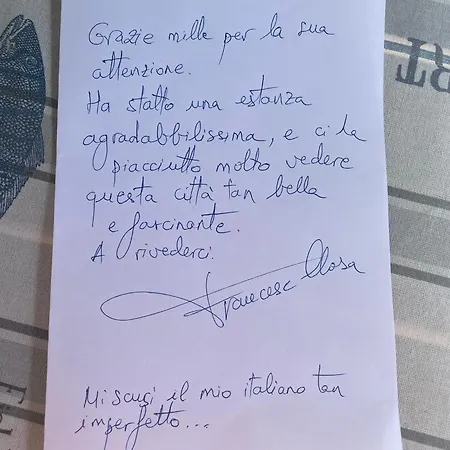 Grazie mille per la sua
attenzione.
Ha statto una estanza
agradabbilissima, e ci ha
piacciutto molto vedere
questa città tan bella
e fascinante.
A rivederci.
Francesc Closa
Mi scusi il mio italiano tan
imperfetto...